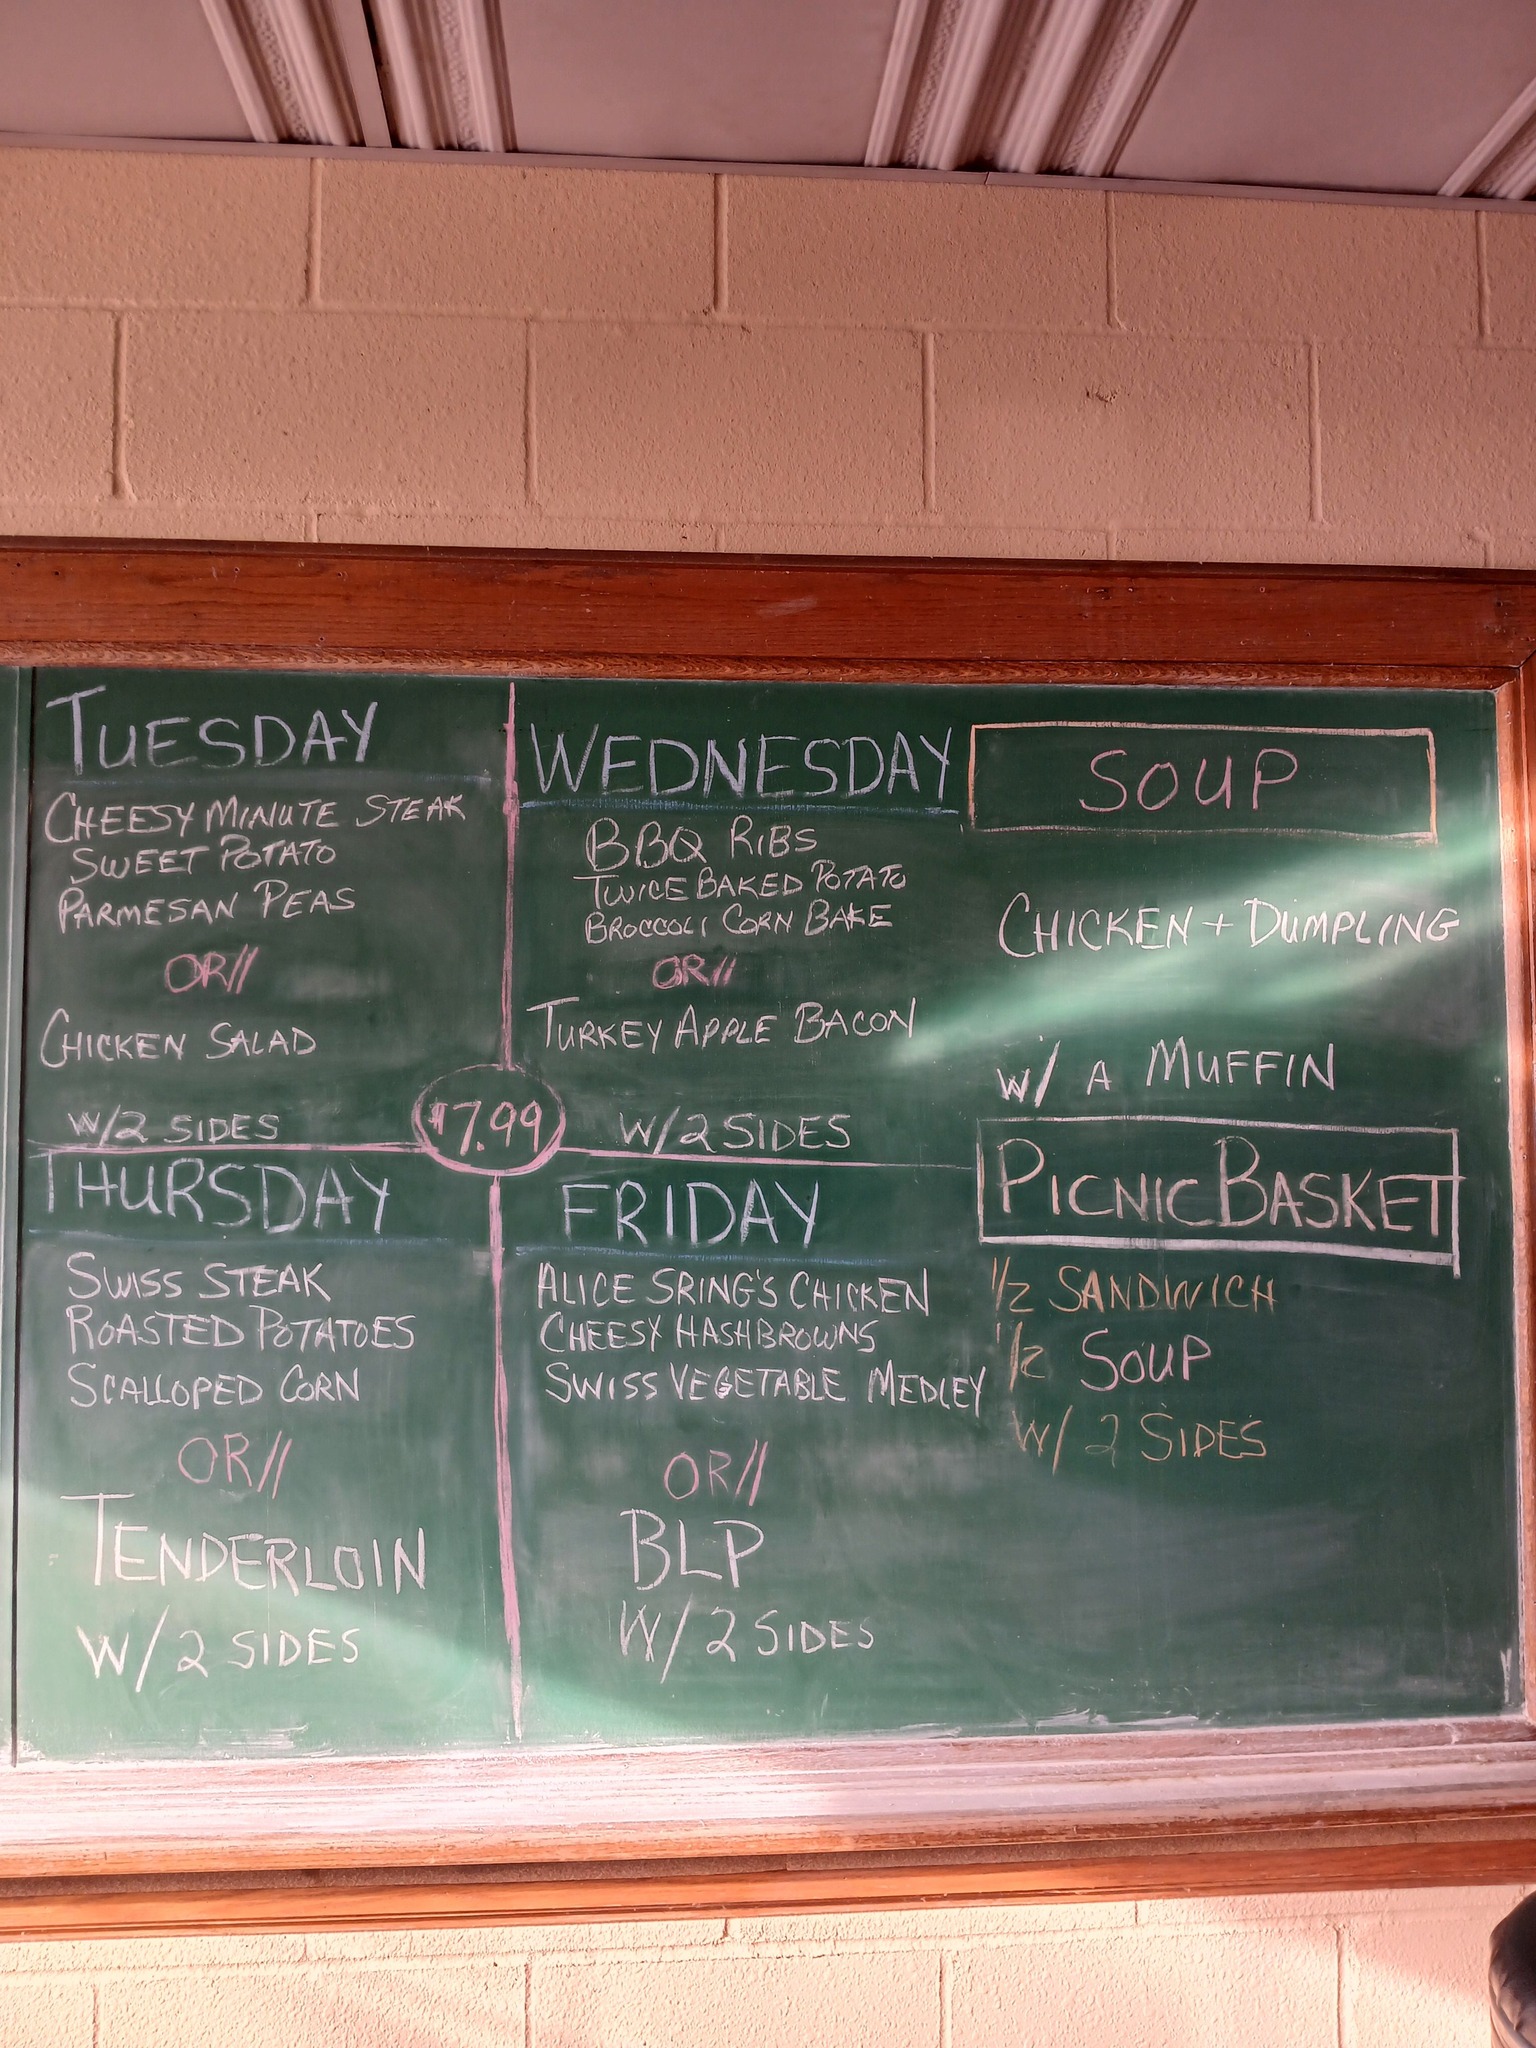 TUESDAY
CHEESY MINUTE STEAK
SWEET POTATO
PARMESAN PEAS
OR//
CHICKEN SALAD
W/2 SIDES
WEDNESDAY
BBQ RIBS
TWICE BAKED POTATO
BROCCOLI CORN BAKE
OR//
TURKEY APPLE BACON
W/2 SIDES
$7.99
THURSDAY
SWISS STEAK
ROASTED POTATOES
SCALLOPED CORN
OR//
TENDERLOIN
W/2 SIDES
FRIDAY
ALICE SRING'S CHICKEN
CHEESY HASHBROWNS
SWISS VEGETABLE MEDLEY
OR//
BLP
W/2 SIDES
SOUP
CHICKEN + DUMPLING
W/ A MUFFIN
PICNIC BASKET
1/2 SANDWICH
1/2 SOUP
W/ 2 SIDES